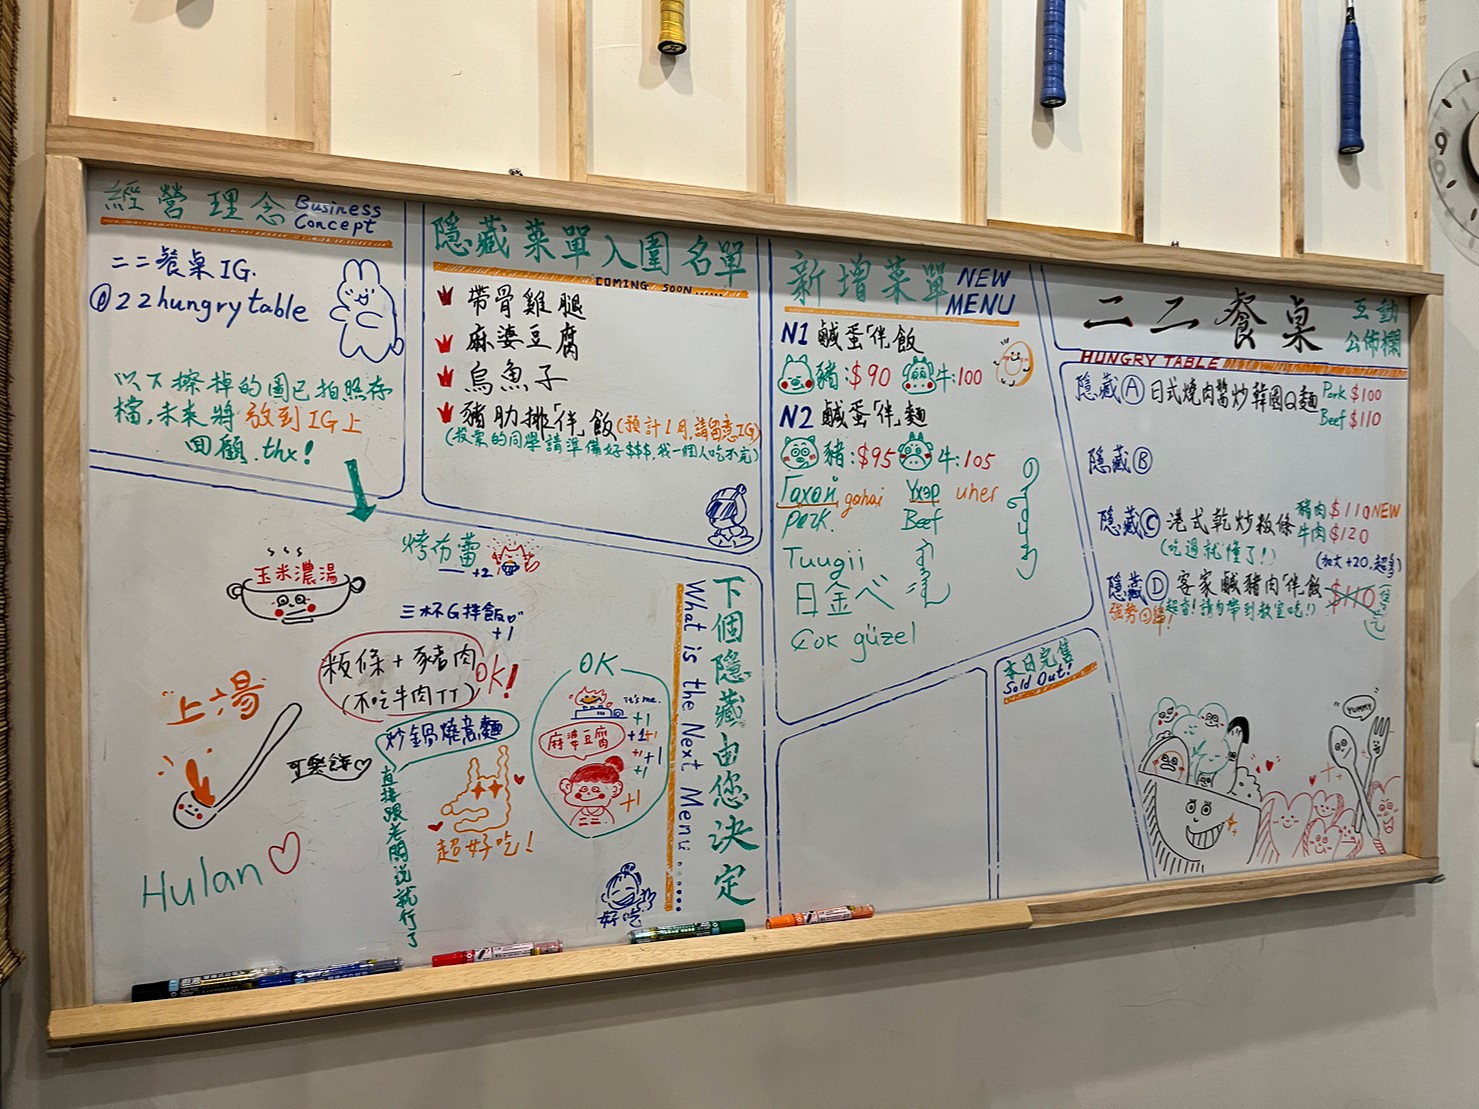 經營理念 Business Concept
二二餐桌 IG.
@22hungrytable
以下擦掉的圖已拍照存
檔,未來將放到IG上
回顧.thx!
隱藏菜單入圍名單
COMING SOON......
帶骨雞腿
麻婆豆腐
烏魚子
豬肋排伴飯(預計1月,請留意IG)
(投票的同學請準備好$$$,我一個人吃不完)
新增菜單 NEW MENU
N1 鹹蛋伴飯
豬:$90 牛:100
N2 鹹蛋伴麵
豬:$95 牛:105
Гахай gahai Үхэр uher
Pork. Beef
Tuugii
Çok güzel
二二餐桌 互動公佈欄
HUNGRY TABLE
隱藏Ⓐ日式燒肉醬炒韓國Q麵 Pork $100
Beef $110
隱藏Ⓑ
隱藏Ⓒ 港式乾炒粄條 豬肉$110 NEW
牛肉$120
(吃過就懂了!) (加大+20,超多)
隱藏Ⓓ 客家鹹豬肉伴飯 $110
強勢回歸! 超香!請勿帶到教室吃!)
YUMMY
本日完售
Sold Out!
下個隱藏由您決定
What is the Next Menu......
烤布蕾
+2
玉米濃湯
三杯G拌飯
+1
粄條+豬肉
(不吃牛肉TT)
OK!
上湯
可樂餅♡
炒鍋燒意麵
直接跟老闆說就行了
超好吃!
OK
it's me.
+1
麻婆豆腐
+1+1
+1+1
+1
+1
Hulan♡
好吃